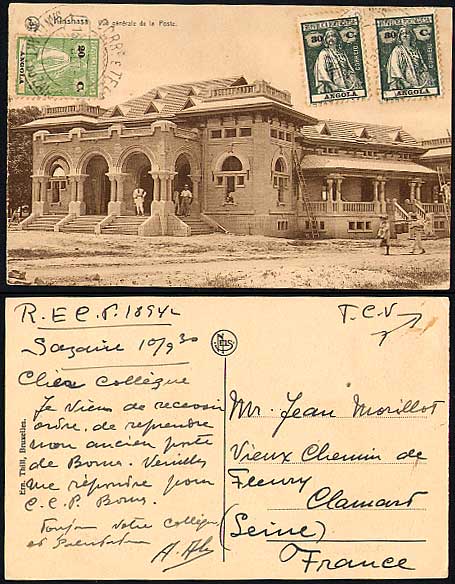 Kinshasa Vue générale de la Poste.
20
C.
ANGOLA
REPUBLICA PORTUGUESA
30 C.
CORREIO
ANGOLA
REPUBLICA PORTUGUESA
30 C.
CORREIO
ANGOLA
R.E.C.P. 1894
T.C.V
10/9 30
Collègue
Je viens de recevoir
ordre, de reprendre
mon ancien poste
de Boma. Veuillez
me répondre pour
C.C.P. Boma.
Toujours votre collègue
et
Ern. Thill, Bruxelles.
NELS
Mr. Jean Morillot
Vieux Chemin de
Fleury
Clamart
(Seine)
France